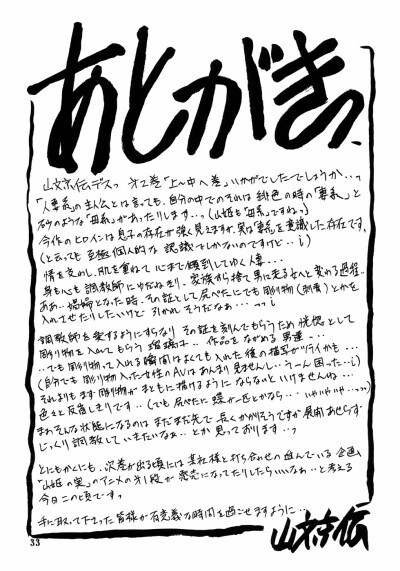 あとがきっ
山文京伝デスっ 第2巻「上~中へ巻」いかがでしたーでしょうか・・っ
「人妻系」の主人公とは言っても、自分の中でのそれは 緋色の時の「妻系」と
砂のような「母系」があったりします・・っ(山姫も「母系」ですねっ)
今作のヒロインは息子の存在が強く見えますが、実は「妻系」を意識した存在です、
(と云っても 至極個人的な 認識でしかないのですけど・・i)
情を交わし、肌を重ねて 心まで傾倒してゆく人妻・・・
身も心も調教師にゆだねきり、家族から捨て男に走る女へと変わる過程・・
ああ・・娼婦となった時、その証として尻ぺたにでも彫り物(刺青)とかを
入れさせたりしたいけど 引かれそうだなぁ・・・っっi
調教師を愛するようにすらなり その証を刻んでもらうため 恍惚として
彫り物を入れてもらう 瑠璃子・・ 作品をながめる 男達・・・
・・でも彫り物って入れる瞬間はよくても入れた後の描写がツライかも・・・
(自分でも 彫り物入れた女性のAVはあんまり見ませんし・・うーん 困った・・i)
それよりもまず 彫り物が まともに描けるように ならないといけませんね・・・
色々と 反省しきりです・・(でも 尻ぺたに 蝶が一匹とかなら・・・いやいやいや・・っっ)
まあそんな状態になるのは まだまだ先で 長くかかりそうですが 展開 あせらず
じっくり 調教して いきたいなぁ・・とか 思っております・・っ
とにもかくにも、次巻が出る頃には某社様と打ち合わせの進んでいる 企画
「山姫の実」のアニメの第1段が 発売になってたりしたらいいなぁ・・と考える
今日この頃ですっ
手に取って下さった皆様が 有意義な時間を過ごせますように・・
山文京伝
33